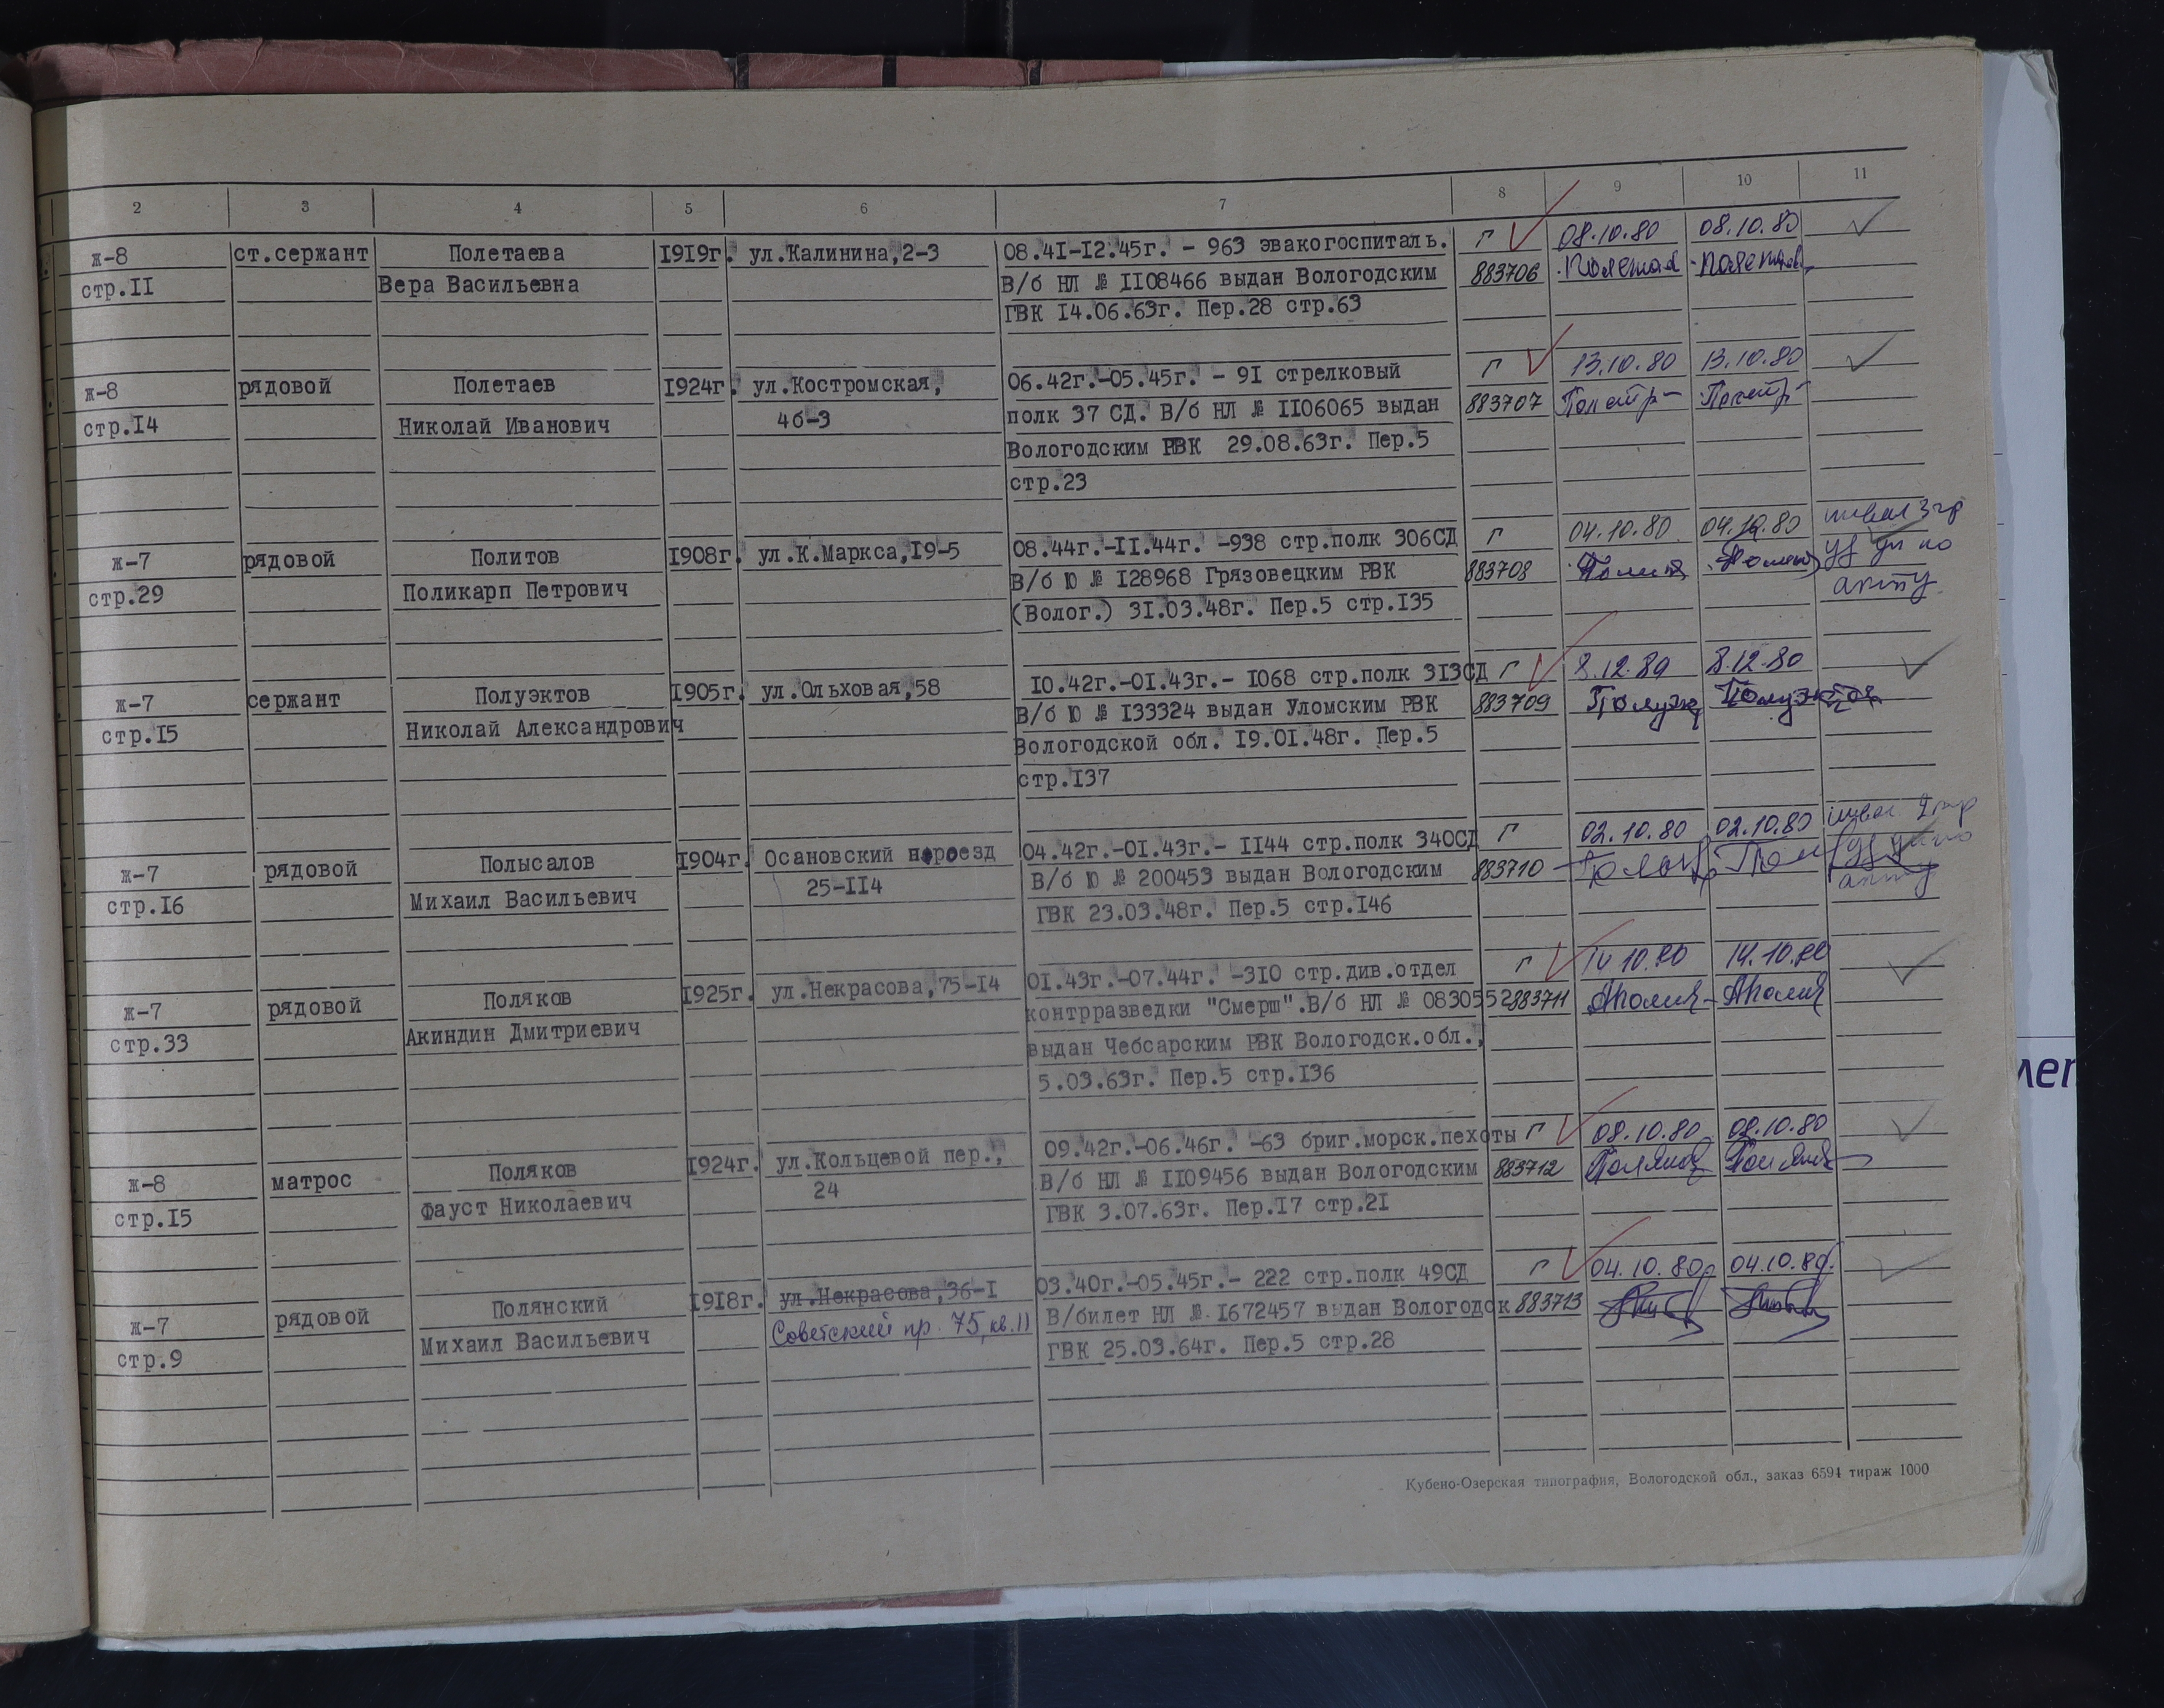 2 3 4 5 6 7 8 9 10 11
ж-8 ст.сержант Полетаева 1919г. ул.Калинина,2-3 08.41-12.45г. - 963 эвакогоспиталь. Г 08.10.80 08.10.80
стр.11 Вера Васильевна В/б НЛ № 1108466 выдан Вологодским 883706
ГВК 14.06.63г. Пер.28 стр.63
ж-8 рядовой Полетаев 1924г. ул.Костромская, 06.42г.-05.45г. - 91 стрелковый Г 13.10.80 13.10.80
стр.14 Николай Иванович 4б-3 полк 37 СД. В/б НЛ № 1106065 выдан 883707
Вологодским РВК 29.08.63г. Пер.5
стр.23
ж-7 рядовой Политов 1908г. ул.К.Маркса,19-5 08.44г.-11.44г. -938 стр.полк 306СД Г 04.10.80 04.10.80 инвал 3 гр
стр.29 Поликарп Петрович В/б Ю № 128968 Грязовецким РВК 883708 по
(Волог.) 31.03.48г. Пер.5 стр.135 акту
ж-7 сержант Полуэктов 1905г. ул.Ольховая,58 10.42г.-01.43г.- 1068 стр.полк 313СД Г 8.12.80 8.12.80
стр.15 Николай Александрович В/б Ю № 133324 выдан Уломским РВК 883709 Полуэк Полуэктов
Вологодской обл. 19.01.48г. Пер.5
стр.137
ж-7 рядовой Полысалов 1904г. Осановский проезд 04.42г.-01.43г.- 1144 стр.полк 340СД Г 02.10.80 02.10.80 инвал 2 гр
стр.16 Михаил Васильевич 25-114 В/б Ю № 200453 выдан Вологодским 883710 по
ГВК 23.03.48г. Пер.5 стр.146 акту
ж-7 рядовой Поляков 1925г. ул.Некрасова,75-14 01.43г.-07.44г. -310 стр.див.отдел Г 14.10.80 14.10.80
стр.33 Акиндин Дмитриевич контрразведки "Смерш".В/б НЛ № 0830552 883711
выдан Чебсарским РВК Вологодск.обл.,
5.03.63г. Пер.5 стр.136
ж-8 матрос Поляков 1924г. ул.Кольцевой пер., 09.42г.-06.46г. -63 бриг.морск.пехоты Г 08.10.80 08.10.80
стр.15 Фауст Николаевич 24 В/б НЛ № 1109456 выдан Вологодским 883712
ГВК 3.07.63г. Пер.17 стр.21
ж-7 рядовой Полянский 1918г. ул.Некрасова,36-1 03.40г.-05.45г.- 222 стр.полк 49СД Г 04.10.80г 04.10.80г.
стр.9 Михаил Васильевич Советский пр. 75, кв.11 В/билет НЛ № 1672457 выдан Вологодск 883713
ГВК 25.03.64г. Пер.5 стр.28
Кубено-Озерская типография, Вологодской обл., заказ 6594 тираж 1000